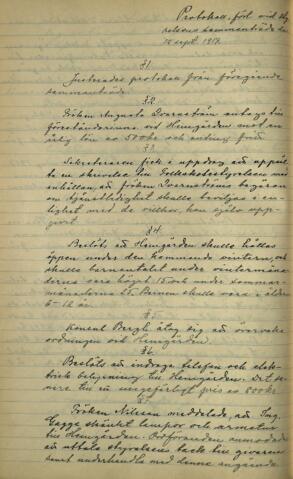 Protokoll, fört vid sty
relsens sammanträde den
sept. 1917.
§1.
Justerades protokoll från föregående
sammanträde.
§2.
Fröken Augusta antogs till
föreståndarinna vid Hemgården mot en
årlig lön av 500 kr och allting fritt.
§3.
Sekreteraren fick i uppdrag att uppsät-
ta en skrivelse till Folkskolestyrelsen med
anhållan, att fröken begäran
om tjänstledighet skulle beviljas i en-
lighet med de villkor, hon själv upp-
givit.
§4.
Beslöts att Hemgården skulle hållas
öppen under den kommande vintern, och
skulle barnantalet under vintermåna-
derna vara högst 15 och under sommar-
månaderna 25. Barnen skulle vara i åldern
6-12 år.
§5.
Konsul Bergh åtog sig att övervaka
ordningen och Hemgården.
§6.
Beslöts att indraga telefon och elek-
trisk belysning till Hemgården. Det se-
nare till ett ungefärligt pris av 600 kr.
§7.
Fröken Nilsson meddelade, att Ing.
skänkt lampor och armatur
till Hemgården. Ordföranden anmodades
att uttala styrelsens tack till givaren
samt underhandla med honom angående